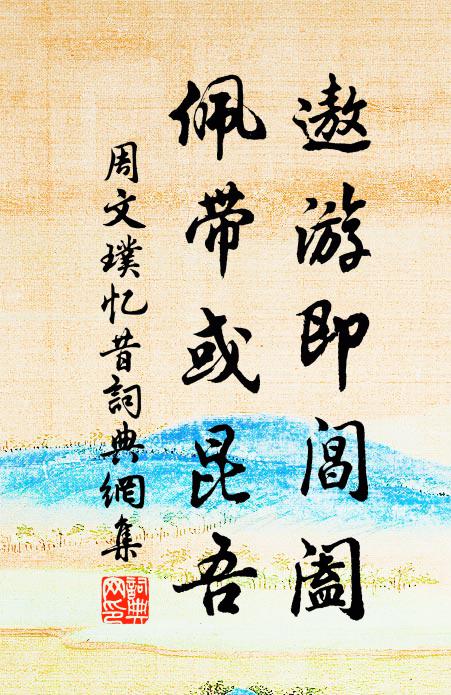 遨游即閶闔
佩带或昆吾
周文璞忆昔詞典網集
詞典网印